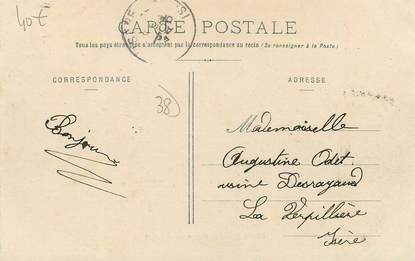 40€
CARTE POSTALE
Tous les pays étrangers n'acceptent pas la correspondance au recto (Se renseigner à la Poste)
CORRESPONDANCE
ADRESSE
38
Bonjour
Mademoiselle
Augustine Odet
usine Desrayaud
La Verpillière
Isère